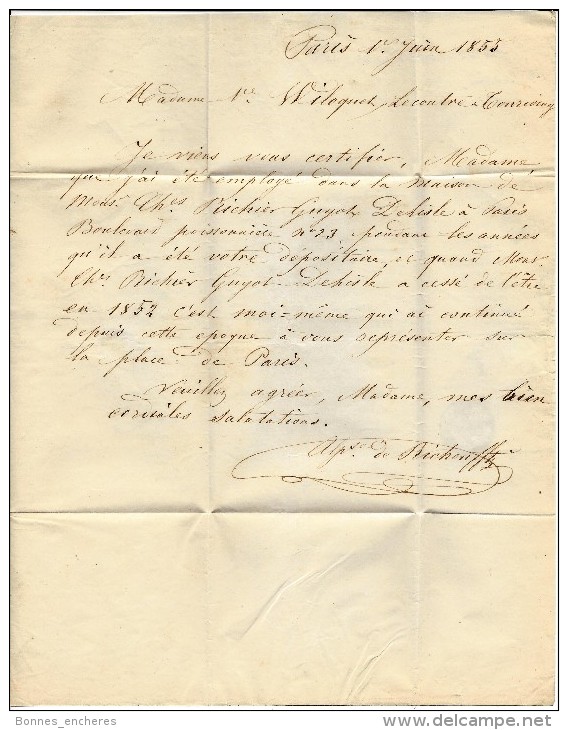 Paris 1er Juin 1855
Madame Ve Wiloquet Lecontre à Tourcoing
Je viens vous certifier, Madame
que j'ai été employé dans la maison de
Monsr. Chs. Richier Guyot Delisle à Paris
Boulevard poissonnière n° 23 pendant les années
qu'il a été votre dépositaire, et quand Monsr
Chs Richier Guyot Delisle a cessé de l'être
en 1852 c'est moi-même qui ai continué
depuis cette epoque à vous représenter sur
la place de Paris.
Veuillez agréer, Madame, mes bien
cordiales salutations.
Alpse. de
Bonnes_encheres
delcampe.net